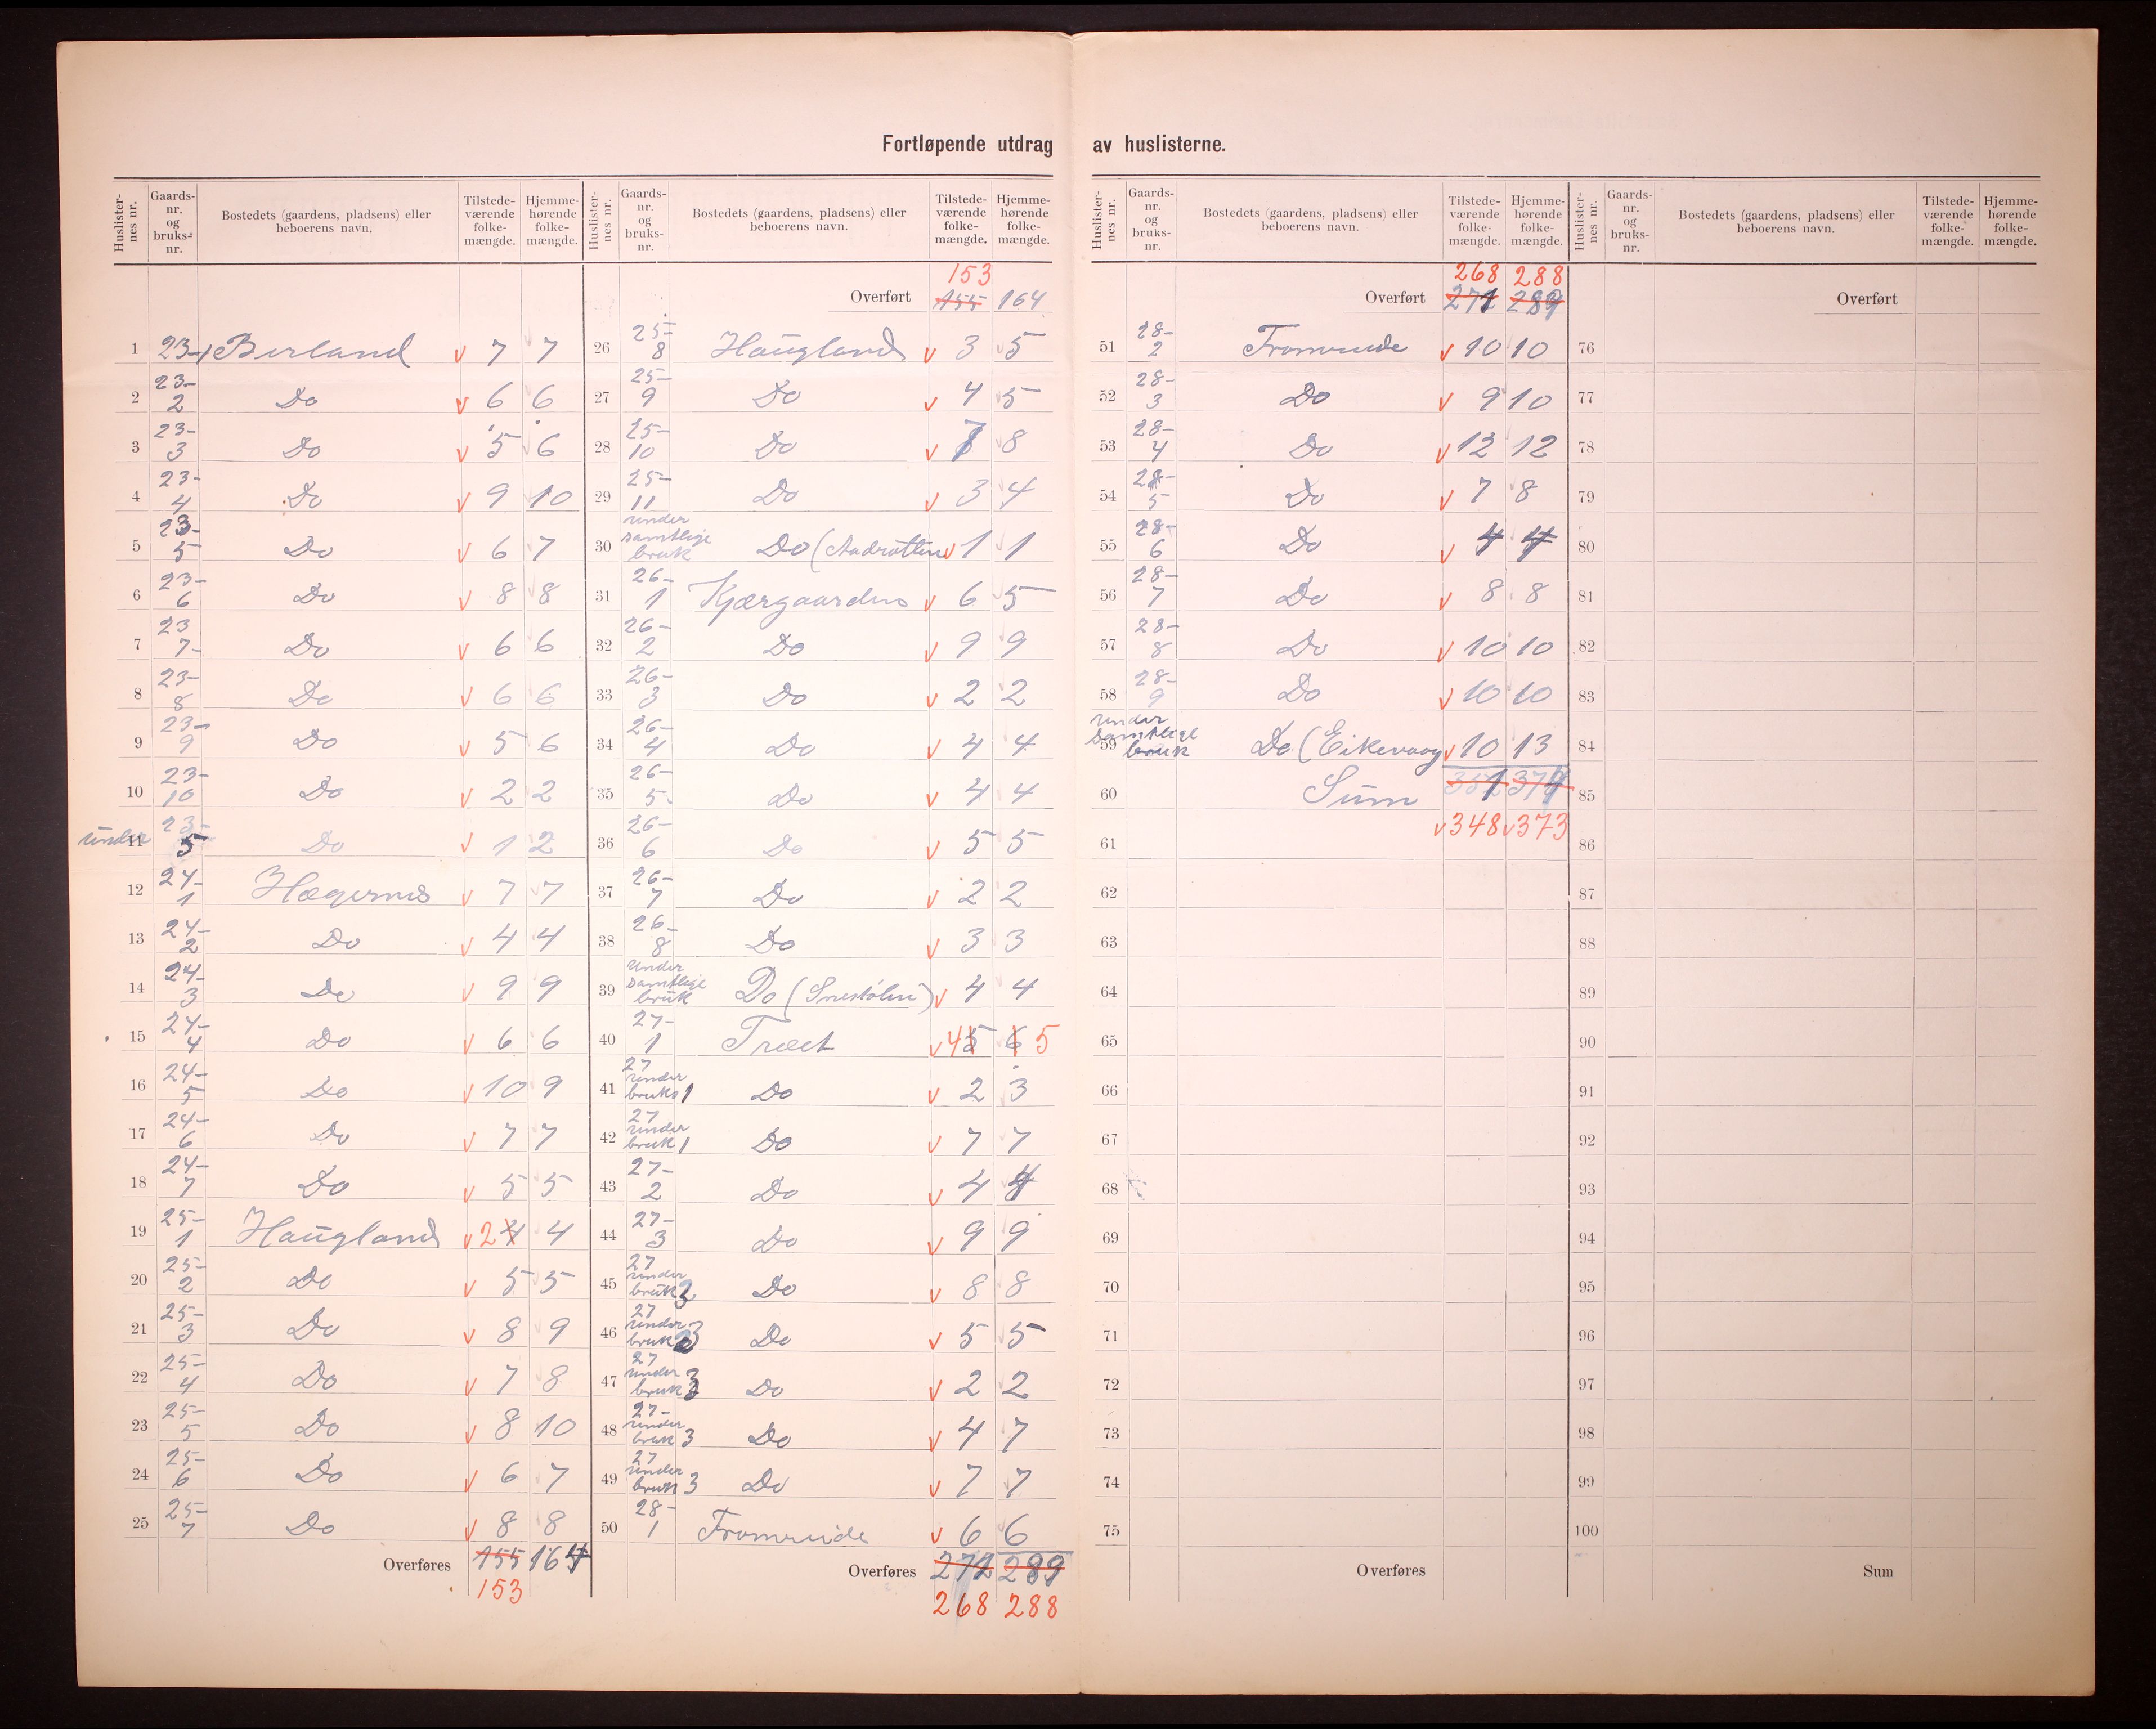 Fortløpende utdrag av huslisterne.
Huslisternes nr. Gaards-nr. og bruks-nr. Bostedets (gaardens, pladsens) eller beboerens navn. Tilstede-værende folke-mængde. Hjemme-hørende folke-mængde.
1 23-1 Berland v 7 7
2 23-2 Do v 6 6
3 23-3 Do v 5 6
4 23-4 Do v 9 10
5 23-5 Do v 6 7
6 23-6 Do v 8 8
7 23 7- Do v 6 6
8 23-8 Do v 6 6
9 23-9 Do v 5 6
10 23-10 Do v 2 2
11 under 23-5 Do v 1 2
12 24-1 Hægernes v 7 7
13 24-2 Do v 4 4
14 24-3 Do v 9 9
15 24-4 Do v 6 6
16 24-5 Do v 10 9
17 24-6 Do v 7 7
18 24-7 Do v 5 5
19 25-1 Haugland v 2 4 4
20 25-2 Do v 5 5
21 25-3 Do v 8 9
22 25-4 Do v 7 8
23 25-5 Do v 8 10
24 25-6 Do v 6 7
25 25-7 Do v 8 8
Overføres 155 164
153
Huslisternes nr. Gaards-nr. og bruks-nr. Bostedets (gaardens, pladsens) eller beboerens navn. Tilstede-værende folke-mængde. Hjemme-hørende folke-mængde.
153
Overført 155 164
26 25-8 Haugland v 3 5
27 25-9 Do v 4 5
28 25-10 Do v 8
29 25-11 Do v 3 4
30 under samtlige bruk Do v 1 1
31 26-1 Kjærgaarden v 6 5
32 26-2 Do v 9 9
33 26-3 Do v 2 2
34 26-4 Do v 4 4
35 26-5 Do v 4 4
36 26-6 Do v 5 5
37 26-7 Do v 2 2
38 26-8 Do v 3 3
39 under samtlige bruk Do v 4 4
40 27-1 Træet v 4 5 6 5
41 27 under bruk 1 Do v 2 3
42 27 under bruk 1 Do v 7 7
43 27-2 Do v 4 4
44 27-3 Do v 9 9
45 27 under bruk 3 Do v 8 8
46 27 under bruk 3 Do v 5 5
47 27 under bruk 3 Do v 2 2
48 27- under bruk 3 Do v 4 7
49 27 under bruk 3 Do v 7 7
50 28-1 Fromreide v 6 6
Overføres 271 289
268 288
Huslisternes nr. Gaards-nr. og bruks-nr. Bostedets (gaardens, pladsens) eller beboerens navn. Tilstede-værende folke-mængde. Hjemme-hørende folke-mængde.
268 288
Overført 271 289
51 28-2 Fromreide v 10 10
52 28-3 Do v 9 10
53 28-4 Do v 12 12
54 28-5 Do v 7 8
55 28-6 Do v 4 4
56 28-7 Do v 8 8
57 28-8 Do v 10 10
58 28-9 Do v 10 10
59 under samtlige bruk Do (Eikevaag v 10 13
60 Sum 351 374
61 v 348 v 373
62
63
64
65
66
67
68
69
70
71
72
73
74
75
Overføres
Huslisternes nr. Gaards-nr. og bruks-nr. Bostedets (gaardens, pladsens) eller beboerens navn. Tilstede-værende folke-mængde. Hjemme-hørende folke-mængde.
Overført
76
77
78
79
80
81
82
83
84
85
86
87
88
89
90
91
92
93
94
95
96
97
98
99
100
Sum